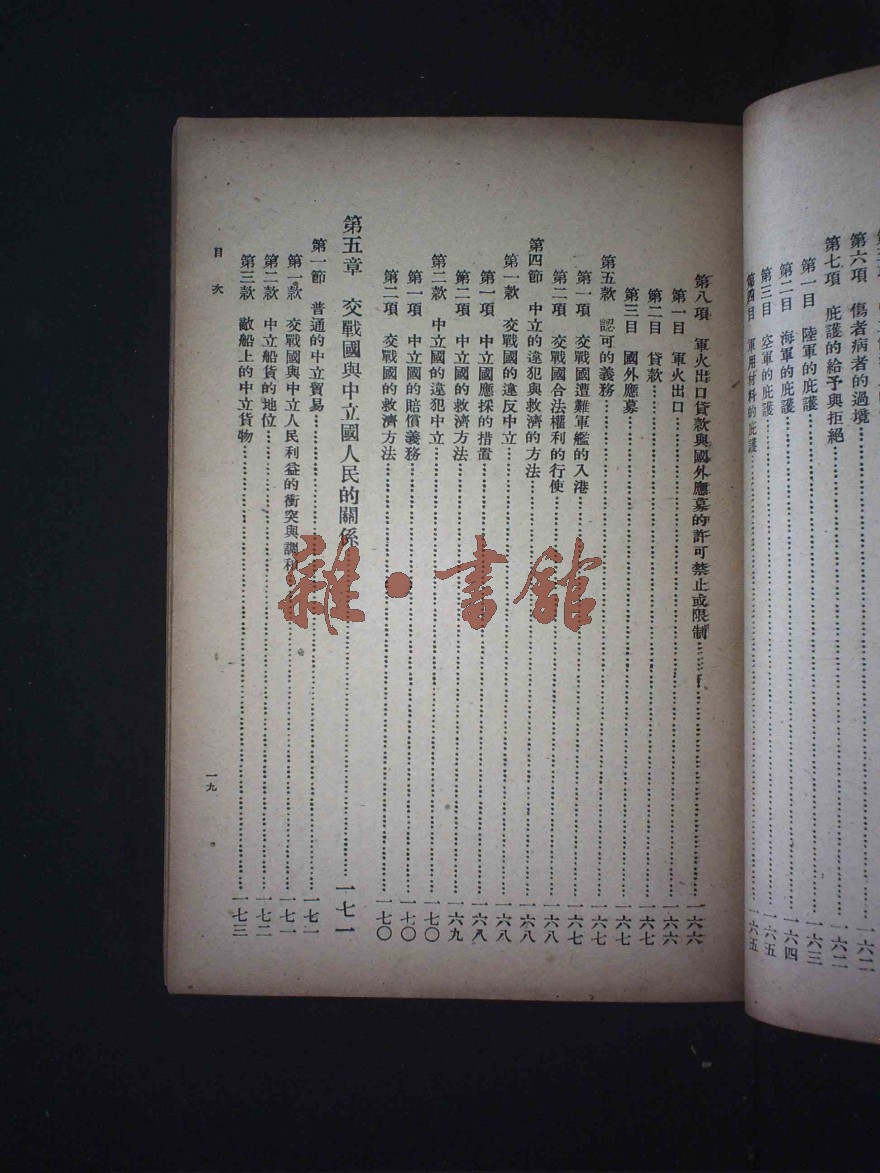 第六項　傷者病者的過境……一六二
第七項　庇護的給予與拒絕……一六二
第一目　陸軍的庇護……一六三
第二目　海軍的庇護……一六四
第三目　空軍的庇護……一六五
第四目　軍用材料的庇護……一六五
第八項　軍火出口貸款與國外應募的許可禁止或限制……一六六
第一目　軍火出口……一六六
第二目　貸款……一六七
第三目　國外應募……一六七
第五款　認可的義務……一六七
第一項　交戰國遭難軍艦的入港……一六七
第二項　交戰國合法權利的行使……一六八
第四節　中立的違犯與救濟的方法……一六八
第一款　交戰國的違反中立……一六八
第一項　中立國應採的措置……一六八
第二項　中立國的救濟方法……一六九
第二款　中立國的違犯中立……一七〇
第一項　中立國的賠償義務……一七〇
第二項　交戰國的救濟方法……一七〇
第五章　交戰國與中立國人民的關係……一七一
第一節　普通的中立貿易……一七一
第一款　交戰國與中立人民利益的衝突與調和……一七一
第二款　中立船貨的地位……一七二
第三款　敵船上的中立貨物……一七三
目次
一九
雜·書館